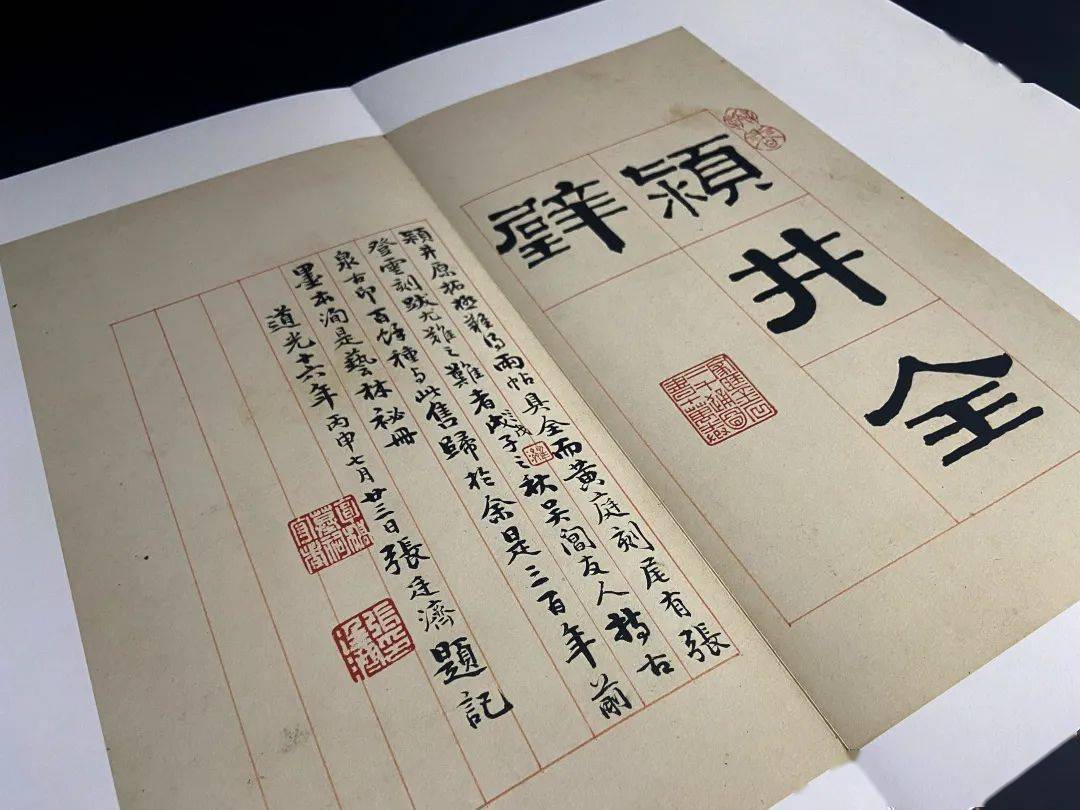 潁井全
璧
潁井原拓極難得兩帖具全而黃庭刻尾有張
登雲刻跋尤難之難者戊子之秋吳閶友人持古
泉古印百餘種与此售歸於余是三百年前
墨本洵是藝林祕冊
道光十六年丙申七月廿三日張廷濟題記
張廷濟